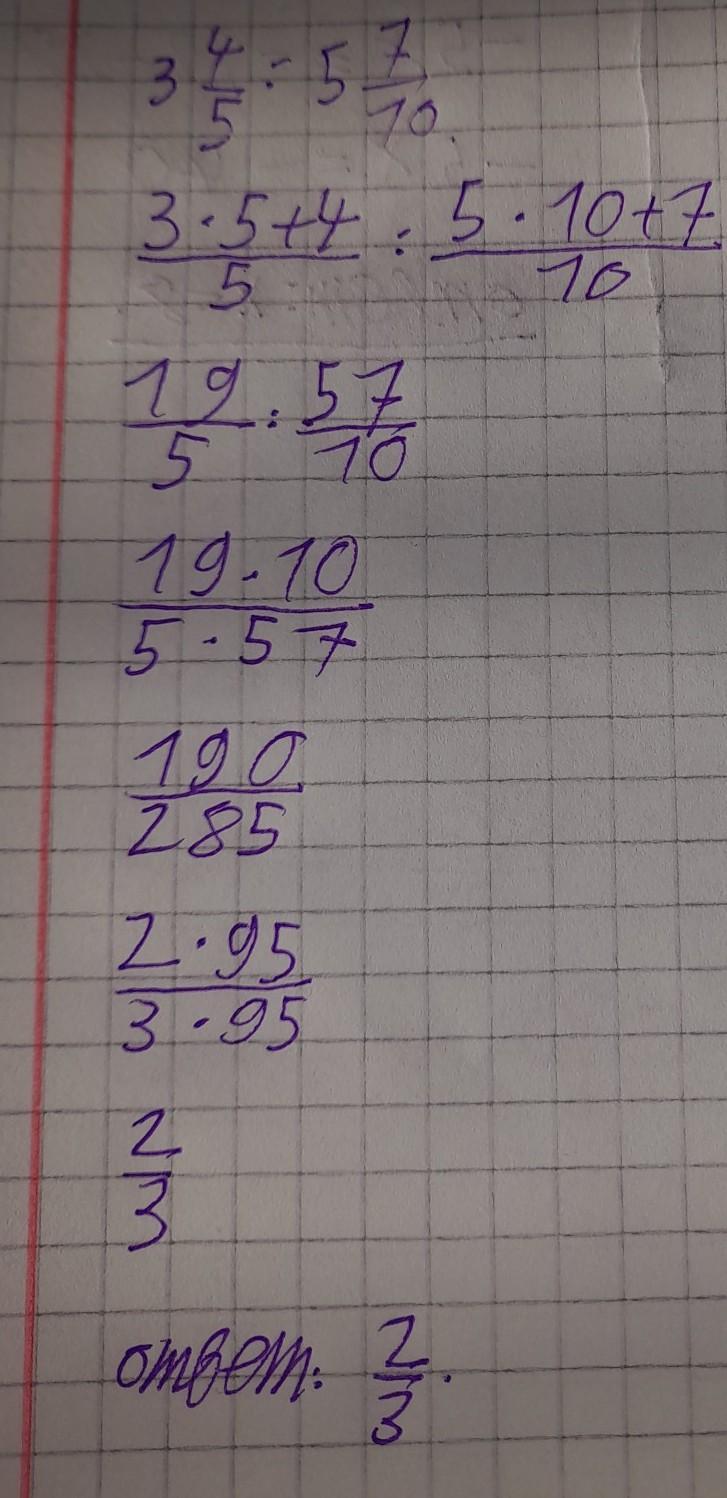 3 4/5 : 5 7/10.
3·5+4/5 : 5·10+7/10
19/5 : 57/10
19·10/5·57
190/285
2·95/3·95
2/3
ответ: 2/3.